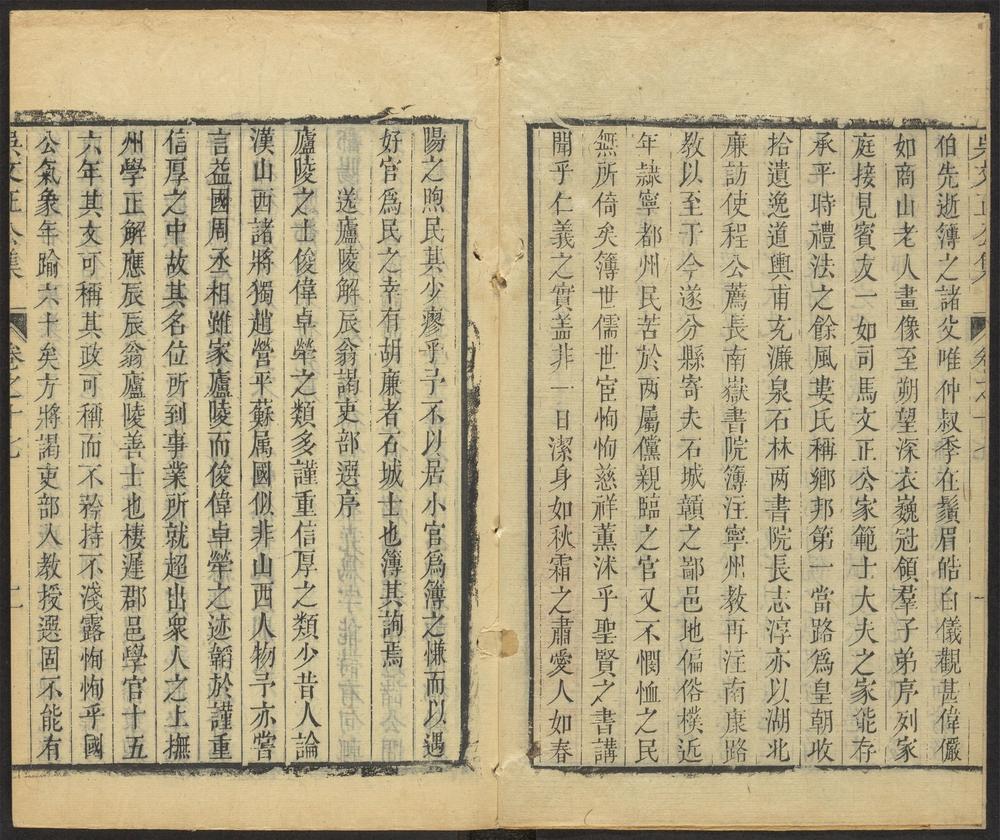 伯先逝簿之諸父唯仲叔季在鬚眉皓白儀觀甚偉儼
如商山老人畫像至朔望深衣巍冠領羣子弟序列家
庭接見賓友一如司馬文正公家範士大夫之家能存
承平時禮法之餘風婁氏稱鄉邦第一當路爲皇朝收
拾遺逸道輿甫充濂泉石林两書院長志淳亦以湖北
廉訪使程公薦長南嶽書院簿注寧州教再注南康路
教以至于今遂分縣寄夫石城贑之鄙邑地偏俗樸近
年隷寧都州民苦於两屬儻親臨之官又不憫恤之民
無所倚矣簿世儒世宦恂恂慈祥薰沐乎聖賢之書講
聞乎仁義之實盖非一日潔身如秋霜之肅愛人如春
陽之煦民其少瘳乎予不以居小官爲簿之慊而以遇
好官爲民之幸有胡廉者石城士也簿其詢焉
送廬陵解辰翁謁吏部選序
廬陵之士俊偉卓犖之類多謹重信厚之類少昔人論
漢山西諸將獨趙營平蘇属國似非山西人物予亦嘗
言益國周丞相雖家廬陵而俊偉卓犖之迹韜於謹重
信厚之中故其名位所到事業所就超出衆人之上撫
州學正解應辰辰翁廬陵善士也棲遲郡邑學官十五
六年其文可稱其政可稱而不矜持不淺露恂恂乎國
公氣象年踰六十矣方將謁吏部入教授選固不能有
吳文正公集 卷之十七 二